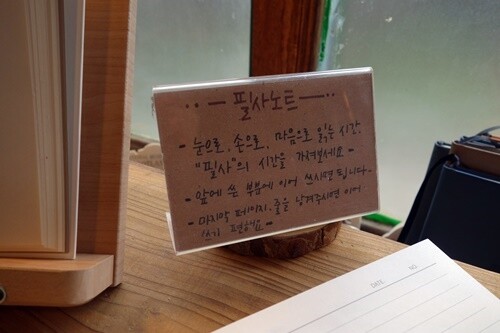 ..—필사노트—..
- 눈으로, 손으로, 마음으로 읽는 시간,
"필사"의 시간을 가져보세요 -
- 앞에 쓴 부분에 이어 쓰시면 됩니다 -
- 마지막 페이지, 줄을 남겨주시면 이어
쓰기 편해요 -
DATE NO.